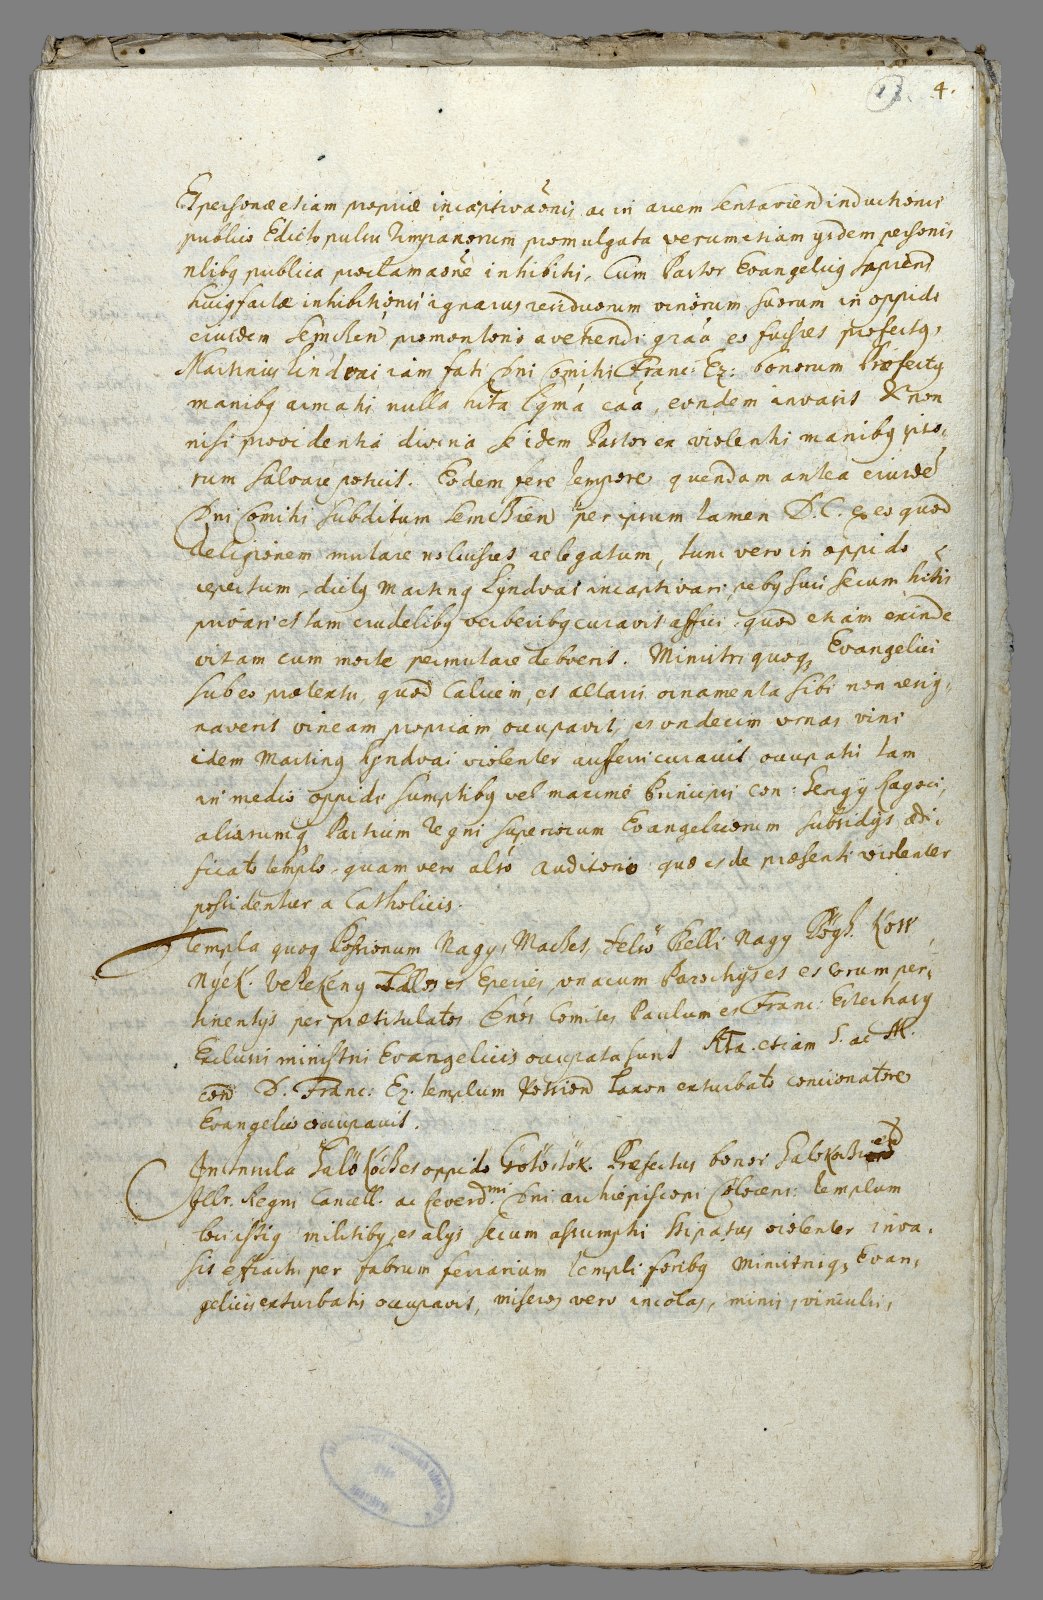 4.
Et personae etiam propriae incaptivaõnis ac in arcem Sentavien̄ inductionis
publico Edicto pulsu Timpanorum promulgata verum etiam ijsdem personis
publica proclamaõne inhibitis, Cum Pastor Evangelicq
huiq factae inhibitionis ignarus residuorum vinorum suorum in oppido
eiusdem promontorio avehendi grãa eo fuisset profectq,
Martinus Lindvai iam fati Dni Comitis Franc: Ez: bonorum Praefectq
manibq armatis nulla rita lgma cãa, eundem invasit & non
nisi providentia divina se idem Pastor ex violentis manibq ipso,
rum salvare potuit. Eodem fere tempore quendam antea eiusdẽ
Dni Comitis subditum per ipsum tamen D. C. ex eo quod
Religionem mutare noluisset relegatum, tunc vero in oppido
repertum, dictq Martinq Lyndvai incaptivari rebq suis secum hitis
privari et tam crudelibq verberibq curavit affici, quod etiam exinde
vitam cum morte permutare debverit. Ministri quoq Evangelici
sub eo praetextu, quod Calicem et altaris ornamenta sibi non resig,
naverit vineam propriam occupavit, et undecim urnas vini
idem Martinq Lyndvai violenter aufferri curavit occupatis tam
in medio oppidi sumptibq vel maxime Principis con: Georgÿ Ragoci,
aliorumq Partium Regni superiorum Evangelicorum subsidÿs ædi,
ficato templo, quam vero alio Auditorio quo et de praesenti violenter
possidentur a Catholicis.
Templa quoq Possionum Nagy, Maches, Felsö Pelli Nagy Bögh. Kört,
Nyék. Vezekény Tallos et Eperies, unacum Parochÿs et eorum per,
tinentÿs per praetitulatos Dnos Comites Paulum et Franc: Esterhazÿ
Exclusis ministris Evangelicis occupata sunt. etiam S. ac M.
D. Franc: Ez. templum Possion̄ Taxon exturbato concionatore
Evangelico occupavit.
In Insula Salökőz et oppido Praefectus bonor
Illr. Regni Cancell. ac Reverdmi Dni archiepiscopi Colocens: templum
loci istiq militibq et alÿs secum assumptis stipatus violenter inva,
sit effractis per fabrum ferrarium templi foribq Ministrisq Evan,
gelicis exturbatis occupavit, miseros vero incolas, minis, vinculis,